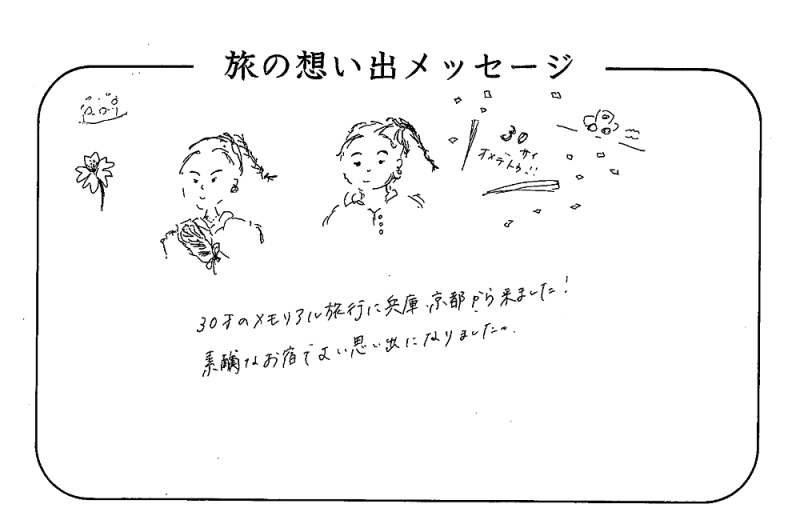 旅の想い出メッセージ
30
サイ
オメデトウ!!
30才のメモリアル旅行に兵庫、京都から来ました!
なお宿でよい思い出になりました。